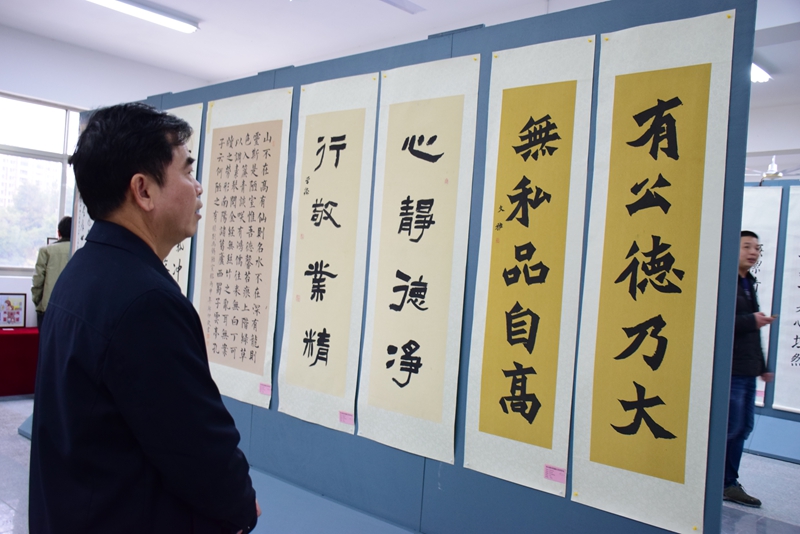 有公德乃大
無私品自高
心靜德淨
行敬業精
山不在高有仙則名水不在深有龍則
靈斯是陋室惟吾德馨苔痕上階綠草
色入簾青談笑有鴻儒往來無白丁可
以調素琴閱金經無絲竹之亂耳無案
牘之勞形南陽諸葛廬西蜀子雲亭孔
子云何陋之有